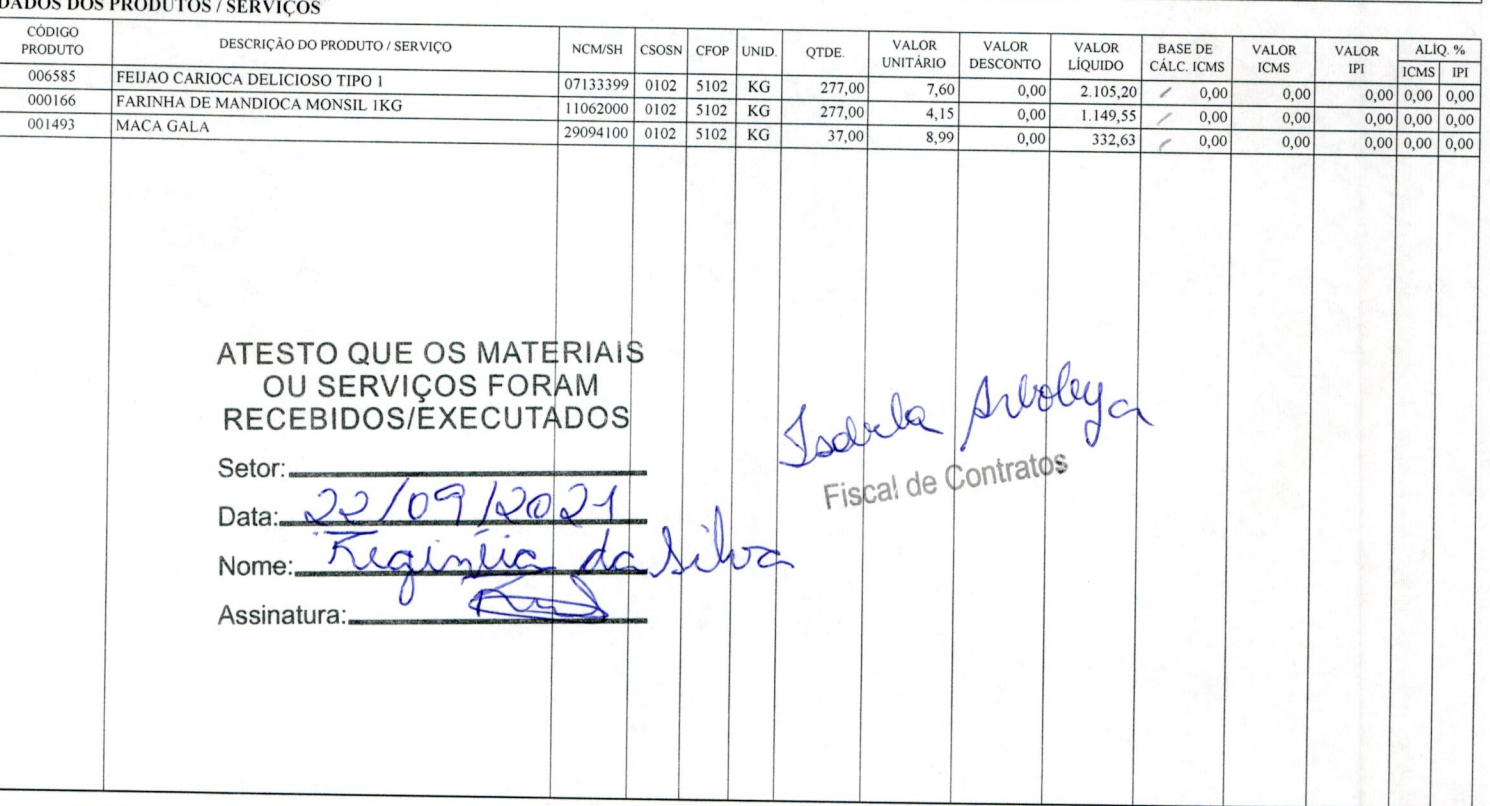 DADOS DOS PRODUTOS / SERVIÇOS
CÓDIGO PRODUTO DESCRIÇÃO DO PRODUTO / SERVIÇO NCM/SH CSOSN CFOP UNID. QTDE. VALOR UNITÁRIO VALOR DESCONTO VALOR LÍQUIDO BASE DE CÁLC. ICMS VALOR ICMS VALOR IPI ALÍQ. % ICMS IPI
006585 FEIJAO CARIOCA DELICIOSO TIPO 1 07133399 0102 5102 KG 277,00 7,60 0,00 2.105,20 0,00 0,00 0,00 0,00 0,00
000166 FARINHA DE MANDIOCA MONSIL 1KG 11062000 0102 5102 KG 277,00 4,15 0,00 1.149,55 0,00 0,00 0,00 0,00 0,00
001493 MACA GALA 29094100 0102 5102 KG 37,00 8,99 0,00 332,63 0,00 0,00 0,00 0,00 0,00
ATESTO QUE OS MATERIAIS
OU SERVIÇOS FORAM
RECEBIDOS/EXECUTADOS
Setor:
Data: 22/09/2021
Nome: da Silva
Assinatura:
Isabela Arboleya
Fiscal de Contratos